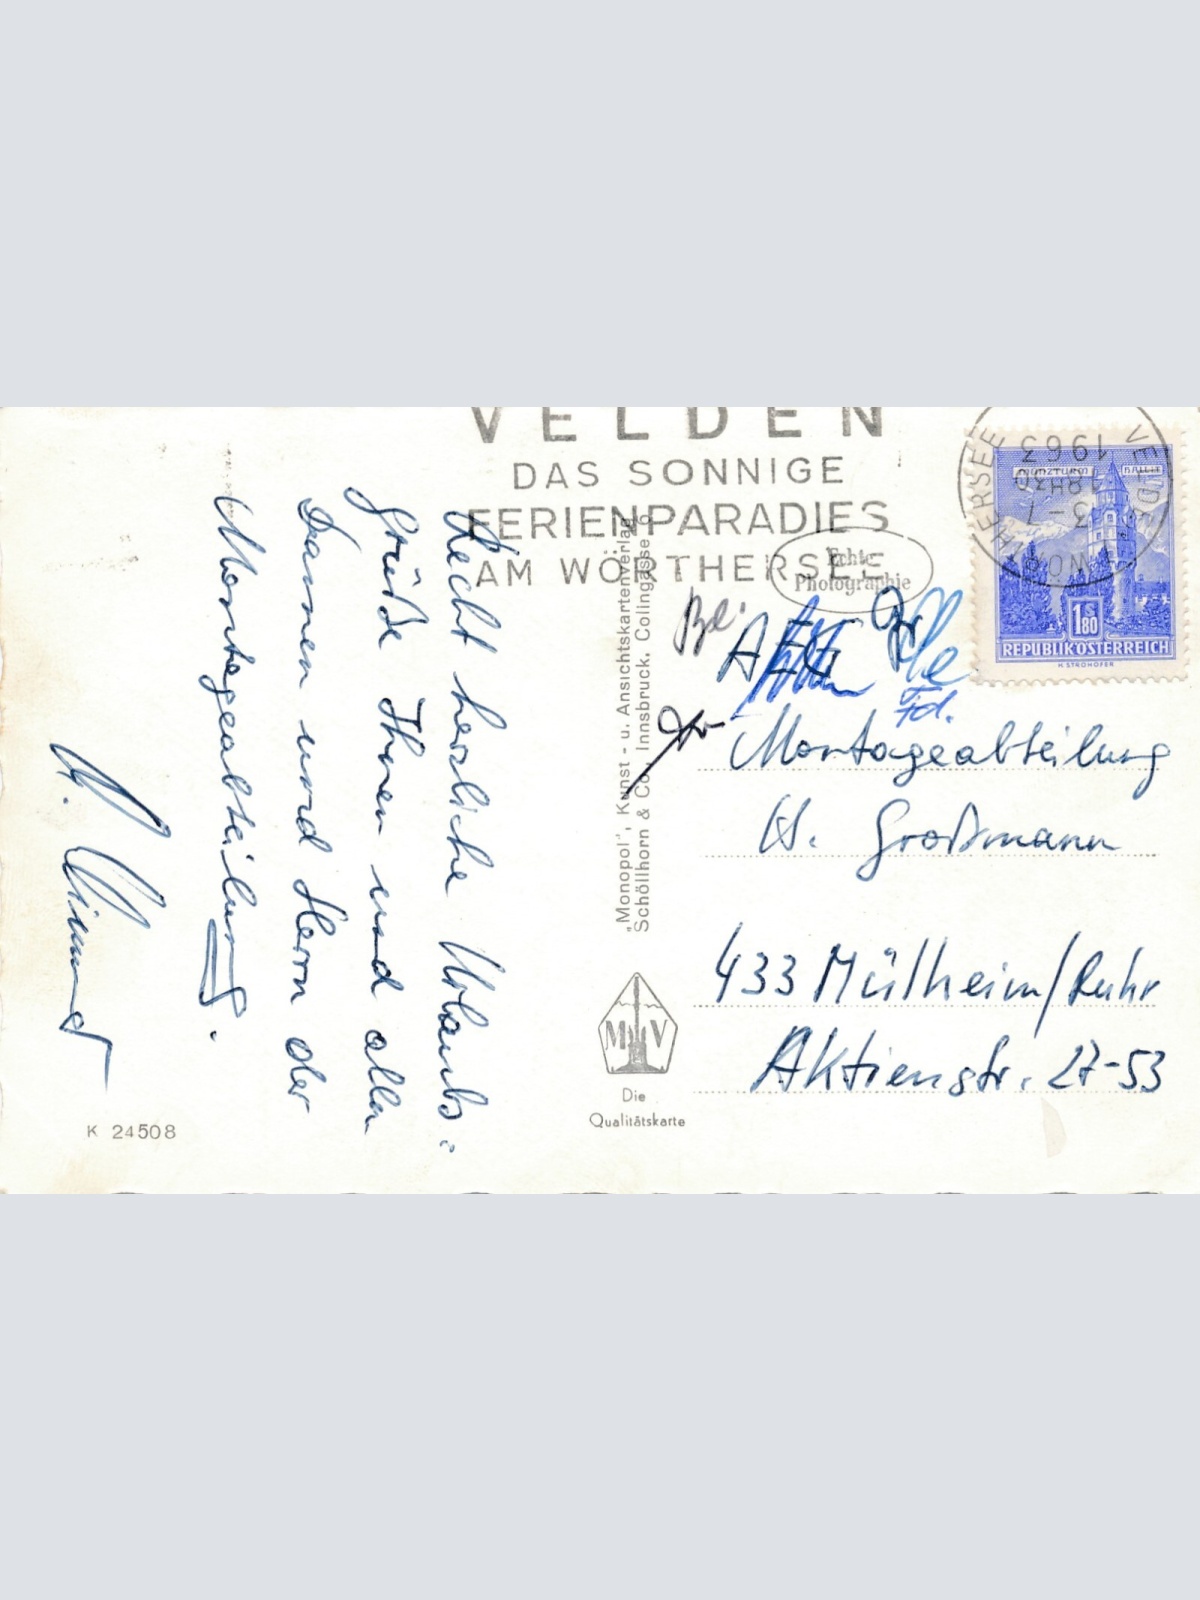 VELDEN
DAS SONNIGE
FERIENPARADIES
AM WÖRTHERSEE
VELDEN
WÖRTHERSEE
1963
18H30
MÜNZTURM
HALL I.T.
1S80
REPUBLIK ÖSTERREICH
H. STROHOFER
Echte
Photographie
Recht herzliche Urlaubs=
Grüße Ihnen und allen
Damen und Herrn der
Montageabteilung.
K 24508
„Monopol", Kunst- u. Ansichtskartenverlag
Schöllhorn & Co., Innsbruck, Colingasse
M V
Die
Qualitätskarte
AEG
Fd.
Montageabteilung
H. Großmann
433 Mülheim/Ruhr
Aktienstr. 27-53